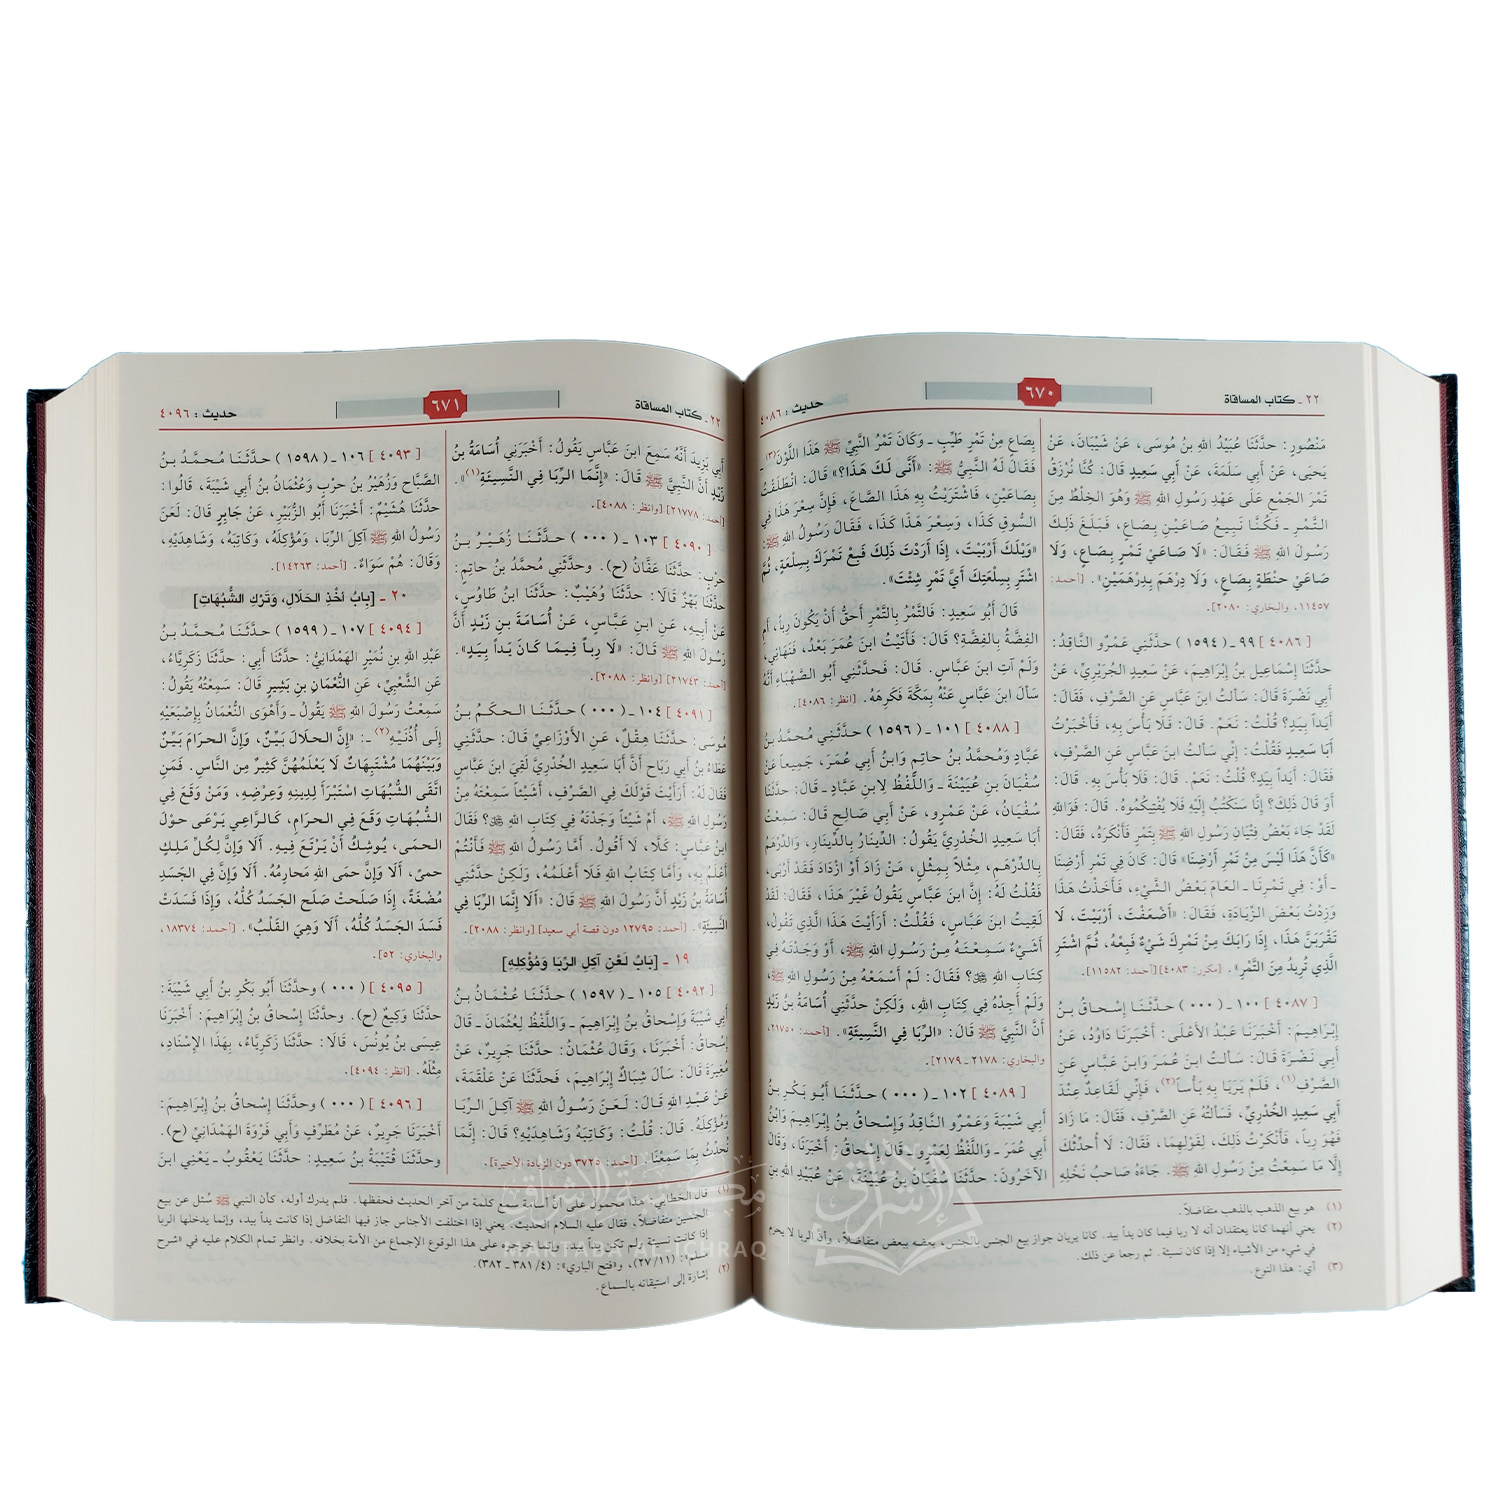 ٢٢ ـ كتاب المساقاة
٦٧٠
حديث : ٤٠٨٦
مَنْصُورٍ: حدَّثنَا عُبَيْدُ اللهِ بنُ مُوسَى، عَنْ شَيْبَانَ، عَنْ
يَحيَى، عَنْ أَبِي سَلَمَةَ، عَنْ أَبي سَعِيدٍ قَالَ: كُنَّا نُرْزَقُ
تَمْرَ الجَمْعِ عَلَى عَهْدِ رَسُولِ اللهِ ﷺ وَهُوَ الخِلْطُ مِنَ
التَّمْرِ ـ فَكُنَّا نَبِيعُ صَاعَيْنِ بِصَاعٍ، فَبَلَغَ ذلِكَ
رَسُولَ اللهِ ﷺ فَقَالَ: «لَا صَاعَيْ تَمْرٍ بِصَاعٍ، وَلَا
صَاعَيْ حِنْطَةٍ بِصَاعٍ، وَلَا دِرْهَمَ بِدِرْهَمَيْنِ». [أحمد:
١١٤٥٧، والبخاري: ٢٠٨٠].
[ ٤٠٨٦ ] ٩٩ ـ ( ١٥٩٤ ) حدَّثنِي عَمْرٌو النَّاقِدُ:
حدَّثنَا إسْمَاعِيل بنُ إِبْرَاهِيمَ، عَنْ سَعِيدٍ الجُرَيْرِيِّ، عَنْ
أَبِي نَضْرَةَ قَالَ: سَألتُ ابنَ عَبَّاسٍ عَنِ الصَّرْفِ، فَقَالَ:
أَيَداً بِيَدٍ؟ قُلْتُ: نَعَمْ. قَالَ: فَلَا بَأسَ بِهِ، فَأَخْبَرْتُ
أَبَا سَعِيدٍ فَقُلْتُ: إِنِّي سَألتُ ابنَ عَبَّاسٍ عَنِ الصَّرْفِ،
فَقَالَ: أَيَداً بِيَدٍ؟ قُلْتُ: نَعَمْ. قَالَ: فَلَا بَأسَ بِهِ. قَالَ:
أَوَ قَالَ ذَلِكَ؟ إِنَّا سَنَكْتُبُ إِلَيْهِ فَلَا يُفْتِيكُمُوهُ. قَالَ: فَوَاللهِ
لَقَدْ جَاءَ بَعْضُ فِتْيَانِ رَسُولِ اللهِ ﷺ بِتَمْرٍ فَأَنْكَرَهُ، فَقَالَ:
«كَأَنَّ هَذَا لَيْسَ مِنْ تَمْرِ أَرْضِنَا» قَالَ: كَانَ فِي تَمْرِ أَرْضِنَا
ـ أَوْ: فِي تَمْرِنَا ـ العَامَ بَعْضُ الشَّيْءِ، فَأَخَذْتُ هَذَا
وَزِدْتُ بَعْضَ الزِّيَادَةِ، فَقَالَ: «أَضْعَفْتَ، أَرْبَيْتَ، لَا
تَقْرَبَنَّ هَذَا، إِذَا رَابَكَ مِنْ تَمْرِكَ شَيْءٌ فَبِعْهُ، ثُمَّ اشْتَرِ
الَّذِي تُرِيدُ مِنَ التَّمْرِ». [مكرر: ٤٠٨٣] [أحمد: ١١٥٨٢].
[ ٤٠٨٧ ] ١٠٠ ـ ( ٠٠٠ ) حدَّثنَا إِسْحَاقُ بنُ
إِبْرَاهِيمَ: أَخْبَرَنَا عَبْدُ الأَعْلَى: أَخْبَرَنَا دَاوُدُ، عَنْ
أَبِي نَضْرَةَ قَالَ: سَألتُ ابنَ عُمَرَ وَابنَ عَبَّاسٍ عَنِ
الصَّرْفِ(١)، فَلَمْ يَرَيَا بِهِ بَأساً(٢)، فَإِنِّي لَقَاعِدٌ عِنْدَ
أَبِي سَعِيدٍ الخُدْرِيِّ، فَسَألتُهُ عَنِ الصَّرْفِ، فَقَالَ: مَا زَادَ
فَهُوَ رِباً، فَأَنْكَرْتُ ذَلِكَ، لِقَوْلِهِمَا، فَقَالَ: لَا أُحدِّثُكَ
إِلَّا مَا سَمِعْتُ مِنْ رَسُولِ اللهِ ﷺ. جَاءَهُ صَاحبُ نَخْلِهِ
بِصَاعٍ مِنْ تَمْرٍ طَيِّبٍ ـ وَكَانَ تَمْرُ النَّبِيِّ ﷺ هَذَا اللَّوْنَ(٣) ـ
فَقَالَ لَهُ النَّبِيُّ ﷺ: «أَنَّى لَكَ هَذَا؟» قَالَ: انْطَلَقْتُ
بِصَاعَيْنِ، فَاشْتَرَيْتُ بِهِ هَذَا الصَّاعَ، فَإِنَّ سِعْرَ هَذَا فِي
السُّوقِ كَذَا، وَسِعْرَ هَذَا كَذَا، فَقَالَ رَسُولُ اللهِ ﷺ:
«وَيْلَكَ أَرْبَيْتَ، إِذَا أَرَدْتَ ذَلِكَ فَبِعْ تَمْرَكَ بِسِلْعَةٍ، ثُمَّ
اشْتَرِ بِسِلْعَتِكَ أَيَّ تَمْرٍ شِئْتَ».
قَالَ أَبُو سَعِيدٍ: فَالتَّمْرُ بِالتَّمْرِ أَحقُّ أَنْ يَكُونَ رِباً، أَمِ
الفِضَّةُ بِالفِضَّةِ؟ قَالَ: فَأَتَيْتُ ابنَ عُمَرَ بَعْدُ، فَنَهَانِي،
وَلَمْ آتِ ابنَ عَبَّاسٍ. قَالَ: فَحَدَّثَنِي أَبُو الصَّهْبَاءِ أَنَّهُ
سَألَ ابنَ عَبَّاسٍ عَنْهُ بِمَكَّةَ فَكَرِهَهُ. [انظر: ٤٠٨٦].
[ ٤٠٨٨ ] ١٠١ ـ ( ١٥٩٦ ) حدَّثنِي مُحَمَّدُ بنُ
عَبَّادٍ وَمُحَمَّدُ بنُ حاتِمٍ وَابنُ أَبِي عُمَرَ، جَمِيعاً عَنْ
سُفْيَانَ بنِ عُيَيْنَةَ ـ وَاللَّفْظُ لِابنِ عَبَّادٍ ـ قَالَ: حدَّثنَا
سُفْيَانُ، عَنْ عَمْرٍو، عَنْ أَبِي صَالِحٍ قَالَ: سَمِعْتُ
أَبَا سَعِيدٍ الخُدْرِيَّ يَقُولُ: الدِّينَارُ بِالدِّينَارِ، وَالدِّرْهَمُ
بِالدِّرْهَمِ، مِثْلاً بِمِثْلٍ، مَنْ زَادَ أَوْ ازْدَادَ فَقَدْ أَرْبَى،
فَقُلْتُ لَهُ: إِنَّ ابنَ عَبَّاسٍ يَقُولُ غَيْرَ هَذَا، فَقَالَ: لَقَدْ
لَقِيتُ ابنَ عَبَّاسٍ، فَقُلْتُ: أَرَأَيْتَ هَذَا الَّذِي تَقُولُ،
أَشَيْءٌ سَمِعْتَهُ مِنْ رَسُولِ اللهِ ﷺ، أَوْ وَجَدْتَهُ فِي
كِتَابِ اللهِ ﷻ؟ فَقَالَ: لَمْ أَسْمَعْهُ مِنْ رَسُولِ اللهِ ﷺ،
وَلَمْ أَجِدْهُ فِي كِتَابِ اللهِ، وَلَكِنْ حدَّثنِي أُسَامَةُ بنُ زَيْدٍ
أَنَّ النَّبِيَّ ﷺ قَالَ: «الرِّبَا فِي النَّسِيئَةِ». [أحمد: ٢١٧٥٠،
والبخاري: ٢١٧٨ ـ ٢١٧٩].
[ ٤٠٨٩ ] ١٠٢ ـ ( ٠٠٠ ) حدَّثنَا أَبُو بَكْرِ بنُ
أَبِي شَيْبَةَ وَعَمْرٌو النَّاقِدُ وَإِسْحاقُ بنُ إِبْرَاهِيمَ وَابْنُ
أَبِي عُمَرَ ـ وَاللَّفْظُ لِعَمْرٍو ـ قَالَ إِسْحاقُ: أَخْبَرَنَا، وَقَالَ
الآخَرُونَ: حدَّثنَا سُفْيَانُ بنُ عُيَيْنَةَ، عَنْ عُبَيْدِ اللهِ بنِ
(١) هو بيع الذهب بالذهب متفاضلاً.
(٢) يعني أنهما كانا يعتقدان أنه لا ربا فيما كان يداً بيد. كانا يريان جواز بيع الجنس بالجنس، بعضه ببعض متفاضلاً، وأنَّ الربا لا يحرم
في شيء من الأشياء إلا إذا كان نسيئة. ثم رجعا عن ذلك.
(٣) أي: هذا النوع.
٢٢ ـ كتاب المساقاة
٦٧١
حديث : ٤٠٩٦
أَبِي يَزِيدَ أَنَّهُ سَمِعَ ابنَ عَبَّاسٍ يَقُولُ: أَخْبَرَنِي أُسَامَةُ بنُ
زَيْدٍ أَنَّ النَّبِيَّ ﷺ قَالَ: «إِنَّمَا الرِّبَا فِي النَّسِيئَةِ(١)».
[أحمد: ٢١٧٧٨] [وانظر: ٤٠٨٨].
[ ٤٠٩٠ ] ١٠٣ ـ ( ٠٠٠ ) حدَّثنَا زُهَيْرُ بنُ
حرْبٍ: حدَّثنَا عَفَّانُ (ح). وحدَّثنِي مُحمَّدُ بنُ حاتِمٍ:
حدَّثنَا بَهْزٌ قَالَا: حدَّثنَا وُهَيْبٌ: حدَّثنَا ابنُ طَاوُسٍ،
عَنْ أَبِيهِ، عَنِ ابنِ عَبَّاسٍ، عَنْ أُسَامَةَ بنِ زَيْدٍ أَنَّ
رَسُولَ اللهِ ﷺ قَالَ: «لَا رِباً فِيمَا كَانَ يَداً بِيَدٍ».
[أحمد: ٢١٧٤٣] [وانظر: ٢٠٨٨].
[ ٤٠٩١ ] ١٠٤ ـ ( ٠٠٠ ) حدَّثنَا الحكَمُ بنُ
مُوسَى: حدَّثنَا هِقْلٌ، عَنِ الأَوْزَاعِيِّ قَالَ: حدَّثنِي
عَطَاءُ بنُ أَبِي رَبَاحٍ أَنَّ أَبَا سَعِيدٍ الخُدْرِيَّ لَقِيَ ابنَ عَبَّاسٍ
فَقَالَ لَهُ: أَرَأَيْتَ قَوْلَكَ فِي الصَّرْفِ، أَشَيْئاً سَمِعْتَهُ مِنْ
رَسُولِ اللهِ ﷺ، أَمْ شَيْئاً وَجَدْتَهُ فِي كِتَابِ اللهِ ﷻ؟ فَقَالَ
ابنُ عَبَّاسٍ: كَلَّا، لَا أَقُولُ. أَمَّا رَسُولُ اللهِ ﷺ فَأَنْتُمْ
أَعْلَمُ بِهِ، وَأَمَّا كِتَابُ اللهِ فَلَا أَعْلَمُهُ، وَلَكِنْ حدَّثنِي
أُسَامَةُ بنُ زَيْدٍ أَنَّ رَسُولَ اللهِ ﷺ قَالَ: «أَلَا إِنَّمَا الرِّبَا فِي
النَّسِيئَةِ». [أحمد: ١٢٧٩٥ دون قصة أبي سعيد] [وانظر: ٢٠٨٨].
١٩ ـ [بَابُ لَعْنِ آكِلِ الرِّبَا وَمُؤْكِلِهِ]
[ ٤٠٩٢ ] ١٠٥ ـ ( ١٥٩٧ ) حدَّثنَا عُثْمَانُ بنُ
أَبِي شَيْبَةَ وَإِسْحَاقُ بنُ إِبْرَاهِيمَ ـ وَاللَّفْظُ لِعُثْمَانَ ـ قَالَ
إِسْحَاقُ: أَخْبَرَنَا، وَقَالَ عُثْمَانُ: حدَّثنَا جَرِيرٌ، عَنْ
مُغِيرَةَ قَالَ: سَألَ شِبَاكٌ إِبْرَاهِيمَ، فَحَدَّثنَا عَنْ عَلْقَمَةَ،
عَنْ عَبْدِ اللهِ قَالَ: لَعَنَ رَسُولُ اللهِ ﷺ آكِلَ الرِّبَا
وَمُؤْكِلَهُ. قَالَ: قُلْتُ: وَكَاتِبَهُ وَشَاهِدَيْهِ؟ قَالَ: إِنَّمَا
نُحَدِّثُ بِمَا سَمِعْنَا. [أحمد: ٣٧٢٥ دون الزيادة الأخيرة].
[ ٤٠٩٣ ] ١٠٦ ـ ( ١٥٩٨ ) حدَّثنَا مُحَمَّدُ بنُ
الصَّبَّاحِ وَزُهَيْرُ بنُ حَرْبٍ وَعُثْمَانُ بنُ أَبِي شَيْبَةَ، قَالُوا:
حدَّثنَا هُشَيْمٌ: أَخْبَرَنَا أَبُو الزُّبَيْرِ، عَنْ جَابِرٍ قَالَ: لَعَنَ
رَسُولُ اللهِ ﷺ آكِلَ الرِّبَا، وَمُؤْكِلَهُ، وَكَاتِبَهُ، وَشَاهِدَيْهِ،
وَقَالَ: هُمْ سَوَاءٌ. [أحمد: ١٤٢٦٣].
٢٠ ـ [بَابُ أَخْذِ الحَلَالِ، وَتَرْكِ الشُّبُهَاتِ]
[ ٤٠٩٤ ] ١٠٧ ـ ( ١٥٩٩ ) حدَّثنَا مُحَمَّدُ بنُ
عَبْدِ اللهِ بنِ نُمَيْرٍ الهَمْدَانِيُّ: حدَّثنَا أَبِي: حدَّثنَا زَكَرِيَّاءُ،
عَنِ الشَّعْبِيِّ، عَنِ النُّعْمَانِ بنِ بَشِيرٍ قَالَ: سَمِعْتُهُ يَقُولُ:
سَمِعْتُ رَسُولَ اللهِ ﷺ يَقُولُ ـ وَأَهْوَى النُّعْمَانُ بِإِصْبَعَيْهِ
إِلَى أُذُنَيْهِ(٢) ـ: «إِنَّ الحَلَالَ بَيِّنٌ، وَإِنَّ الحرَامَ بَيِّنٌ
وَبَيْنَهُمَا مُشْتَبِهَاتٌ لَا يَعْلَمُهُنَّ كَثِيرٌ مِنَ النَّاسِ. فَمَنِ
اتَّقَى الشُّبُهَاتِ اسْتَبْرَأَ لِدِينِهِ وَعِرْضِهِ، وَمَنْ وَقَعَ فِي
الشُّبُهَاتِ وَقَعَ فِي الحرَامِ، كَالرَّاعِي يَرْعَى حوْلَ
الحمَى، يُوشِكُ أَنْ يَرْتَعَ فِيهِ. أَلَا وَإِنَّ لِكُلِّ مَلِكٍ
حمىً، أَلَا وَإِنَّ حمَى اللهِ مَحَارِمُهُ. أَلَا وَإِنَّ فِي الجَسَدِ
مُضْغَةً، إِذَا صَلَحتْ صَلَحَ الجَسَدُ كُلُّهُ، وَإِذَا فَسَدَتْ
فَسَدَ الجَسَدُ كُلُّهُ، أَلَا وَهِيَ القَلْبُ». [أحمد: ١٨٣٧٤،
والبخاري: ٥٢].
[ ٤٠٩٥ ] ( ٠٠٠ ) وحدَّثنَا أَبُو بَكْرِ بنُ أَبِي شَيْبَةَ:
حدَّثنَا وَكِيعٌ (ح). وحدَّثنَا إِسْحَاقُ بنُ إِبْرَاهِيمَ: أَخْبَرَنَا
عِيسَى بنُ يُونُسَ، قَالَا: حدَّثنَا زَكَرِيَّاءُ، بِهَذَا الإِسْنَادِ،
مِثْلَهُ. [انظر: ٤٠٩٤].
[ ٤٠٩٦ ] ( ٠٠٠ ) وحدَّثنَا إِسْحَاقُ بنُ إِبْرَاهِيمَ:
أَخْبَرَنَا جَرِيرٌ، عَنْ مُطَرِّفٍ وَأَبِي فَرْوَةَ الهَمْدَانِيِّ (ح).
وحدَّثنَا قُتَيْبَةُ بنُ سَعِيدٍ: حدَّثنَا يَعْقُوبُ ـ يَعْنِي ابنَ
(١) قال الخطابي: هذا محمول على أنَّ أسامة سمع كلمة من آخر الحديث فحفظها. فلم يدرك أوله، كأن النبي ﷺ سُئل عن بيع
الجنسين متفاضلاً، فقال عليه السلام الحديث. يعني إذا اختلفت الأجناس جاز فيها التفاضل إذا كانت يداً بيد، وإنما يدخلها الربا
إذا كانت نسيئة ولم تكن يداً بيد. وإنما خرجوه على هذا الوقوع الإجماع من الأمة بخلافه. وانظر تمام الكلام عليه في «شرح
مسلم»: (١١/ ٢٧)، و«فتح الباري»: (٤/ ٣٨١ ـ ٣٨٢).
(٢) إشارة إلى استيقانه بالسماع.
مكتبة الإشراق
MAKTABA AL-ICHRAQ
الإشراق